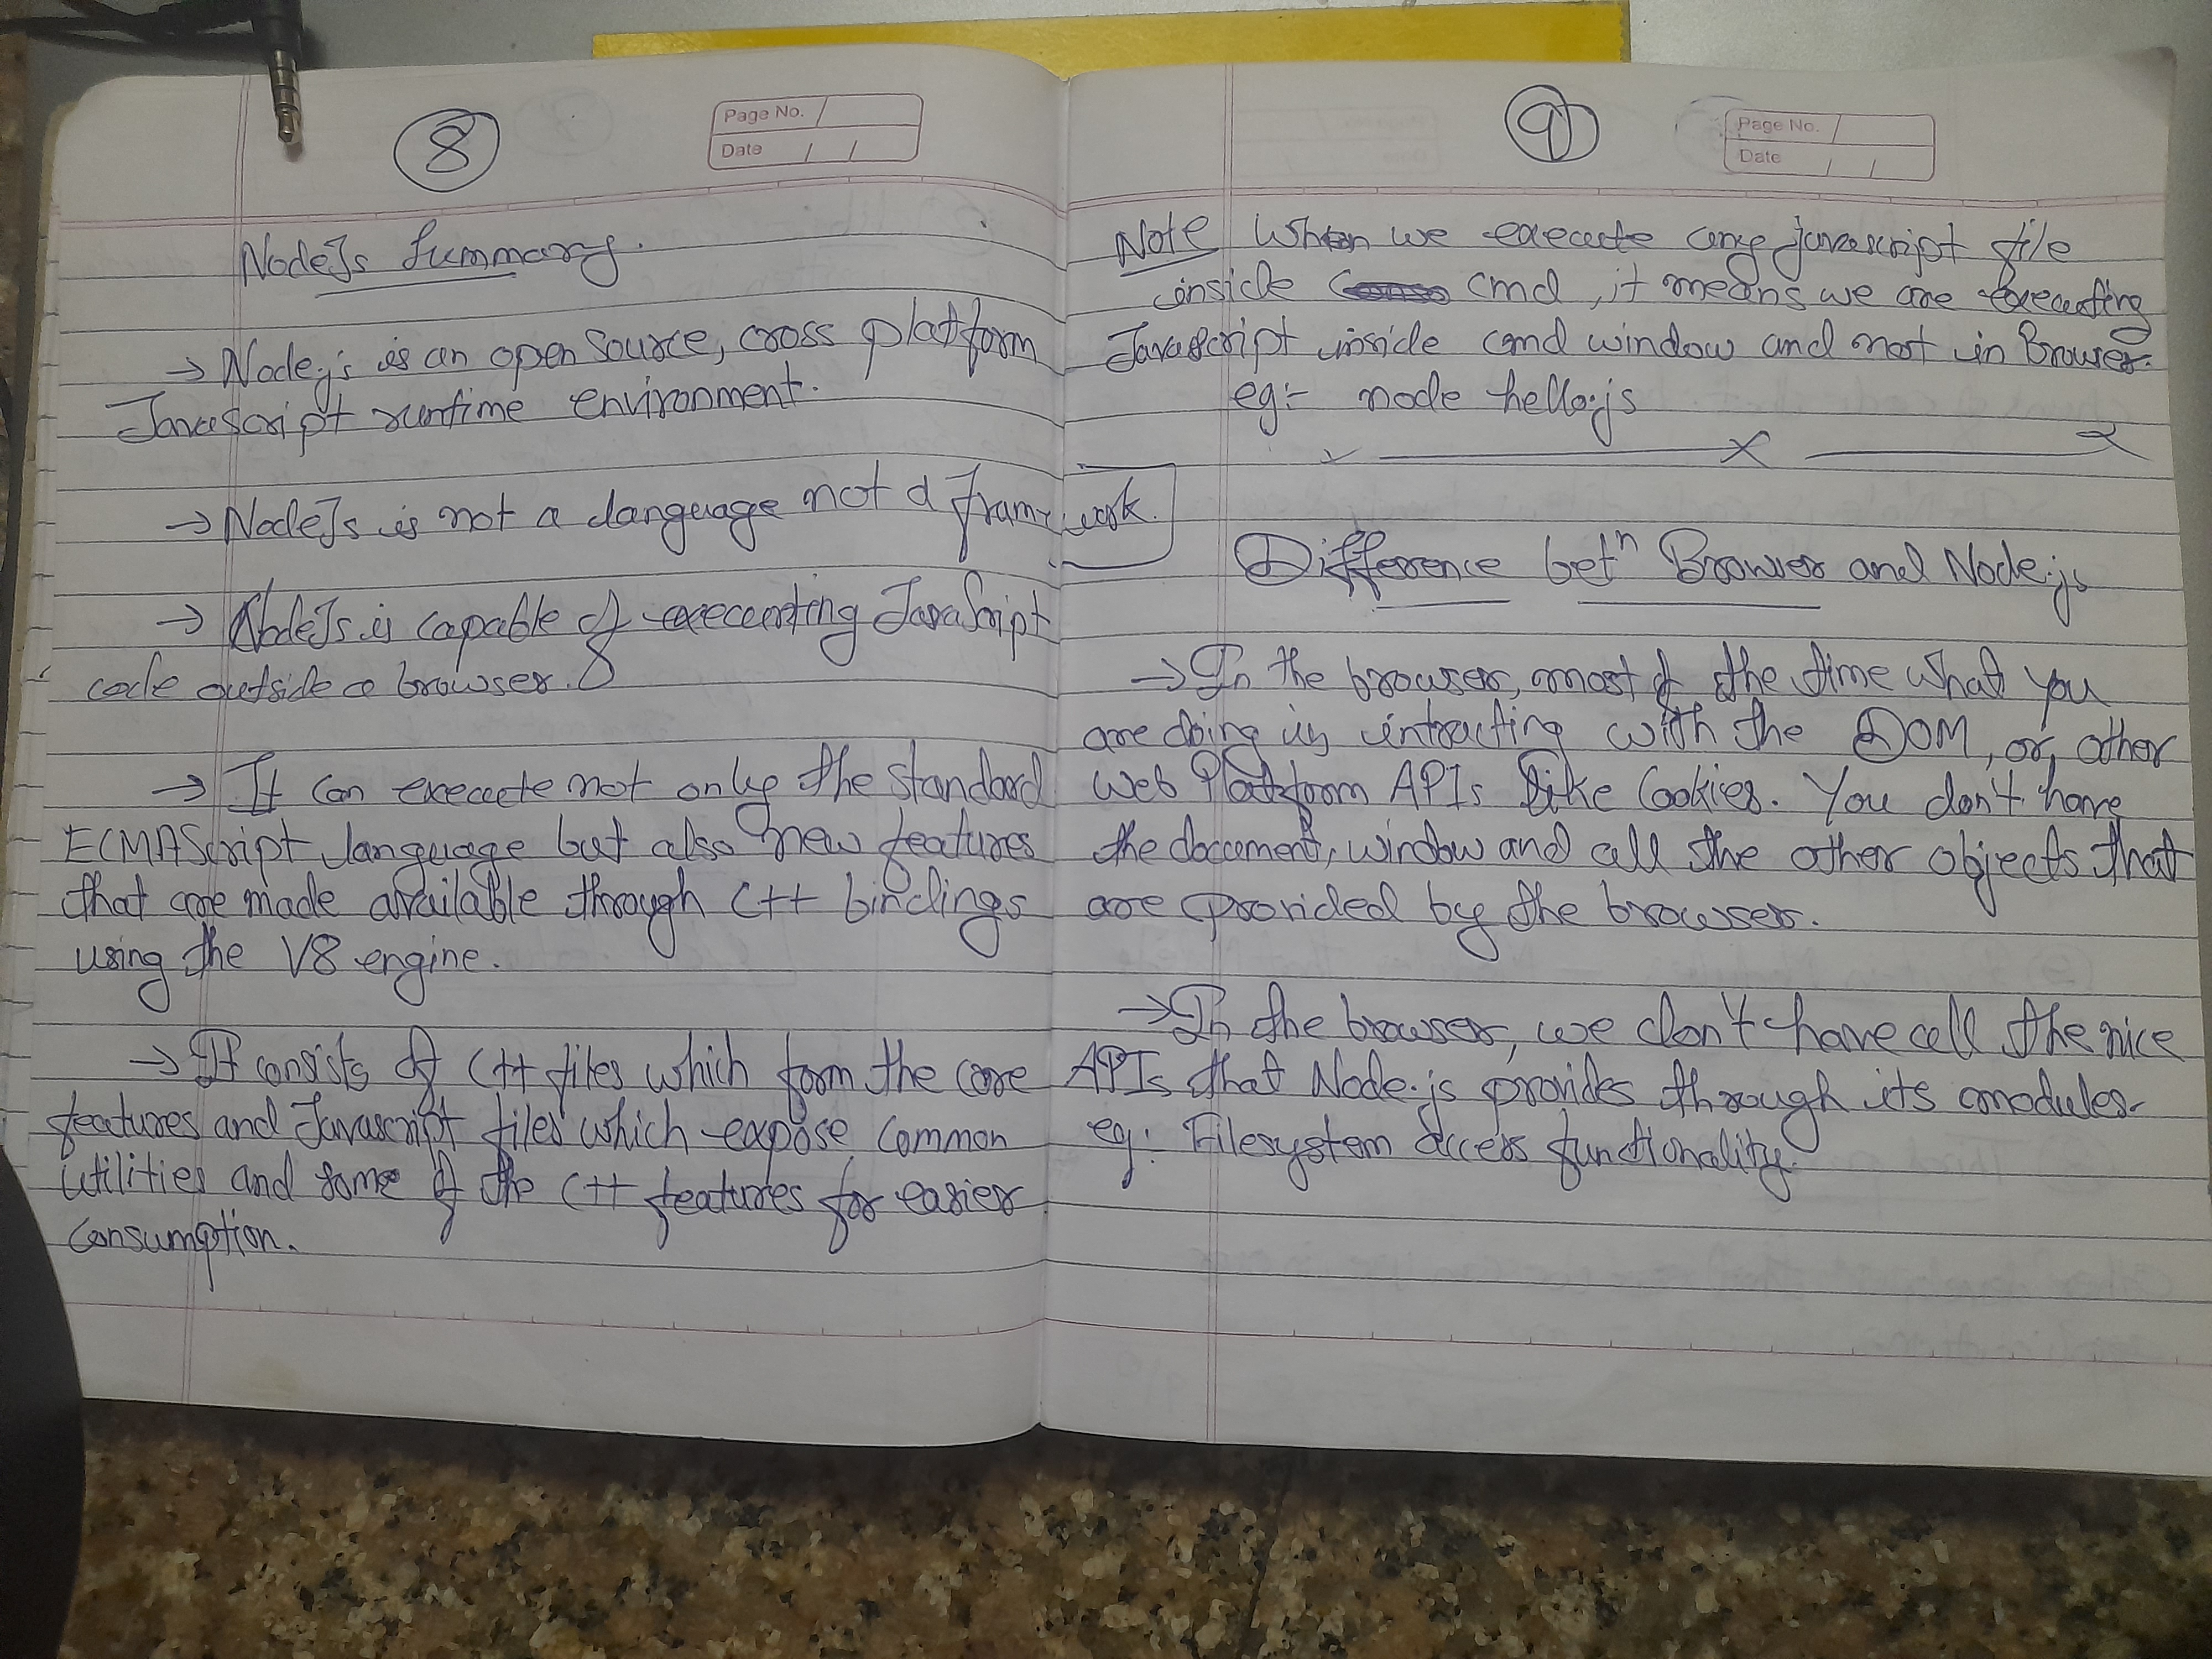 8
Page No.
Date
NodeJs Summary.
→ Node.js is an open source, cross platform
Javascript runtime environment.
→ NodeJs is not a language not a framework.
→ NodeJs is capable of executing JavaScript
code outside a browser.
→ It can execute not only the standard
ECMAScript language but also new features
that are made available through C++ bindings
using the V8 engine.
→ It consists of C++ files which form the core
features and Javascript files which expose common
utilities and some of the C++ features for easier
consumption.
9
Page No.
Date
Note When we execute any javascript file
inside cmd, it means we are executing
Javascript inside cmd window and not in Browser.
eg:- node hello.js
Difference betn Browser and Node.js
→ In the browser, most of the time what you
are doing is interacting with the DOM, or other
web Platform APIs like Cookies. You don't have
the document, window and all the other objects that
are provided by the browser.
→ In the browser, we don't have all the nice
APIs that Node.js provides through its modules.
eg: Filesystem access functionality.